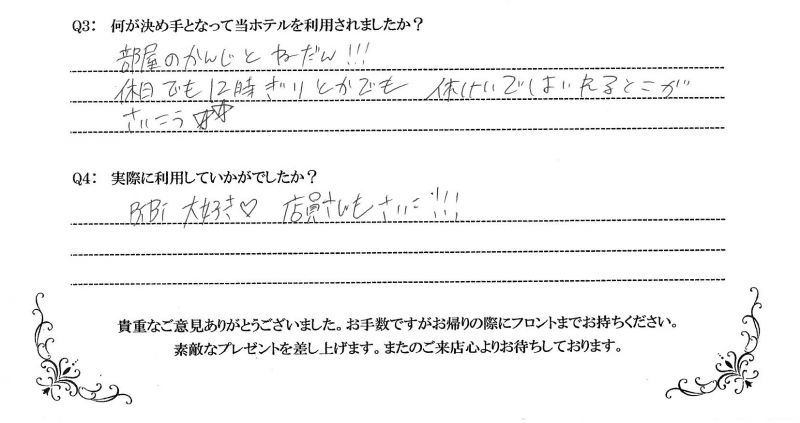 Q3: 何が決め手となって当ホテルを利用されましたか？
部屋のかんじと ねーだん!!!
休日でも12時ぎりとかでも 休けいではいれるとこが
さいこう☆☆
Q4: 実際に利用していかがでしたか？
BiBi 大好き♡ 店員さんもさいこ!!!
貴重なご意見ありがとうございました。お手数ですがお帰りの際にフロントまでお持ちください。
素敵なプレゼントを差し上げます。またのご来店心よりお待ちしております。